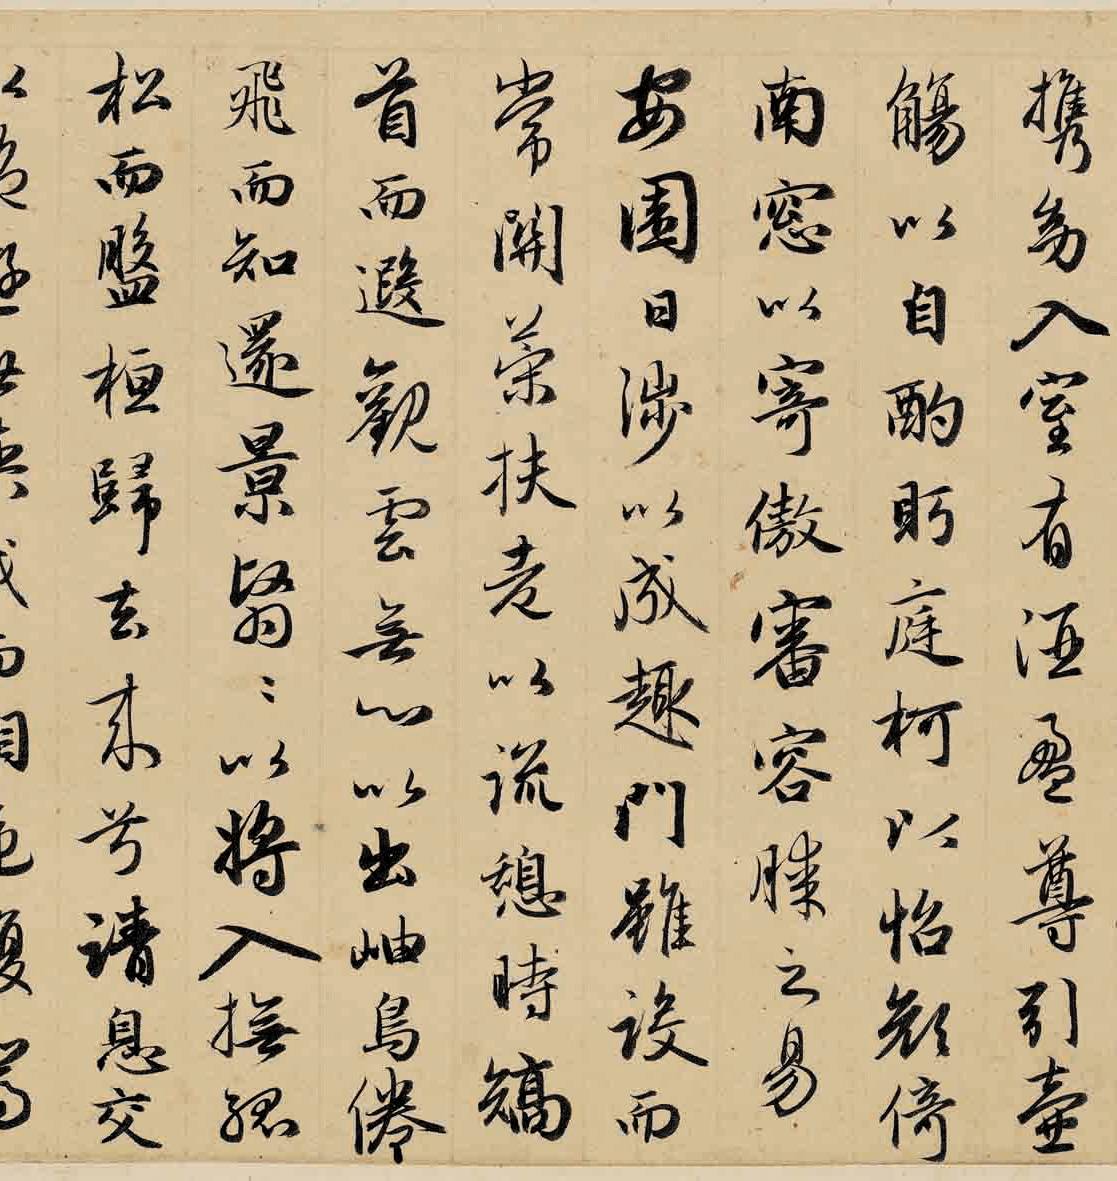 携幼入室有酒盈尊引壺
觴以自酌眄庭柯以怡顏倚
南窓以寄傲審容膝之易
安園日涉以成趣門雖設而
常關策扶老以流憩時矯
首而遐觀雲無心以出岫鳥倦
飛而知還景翳〻以將入撫孤
松而盤桓歸去来兮請息交